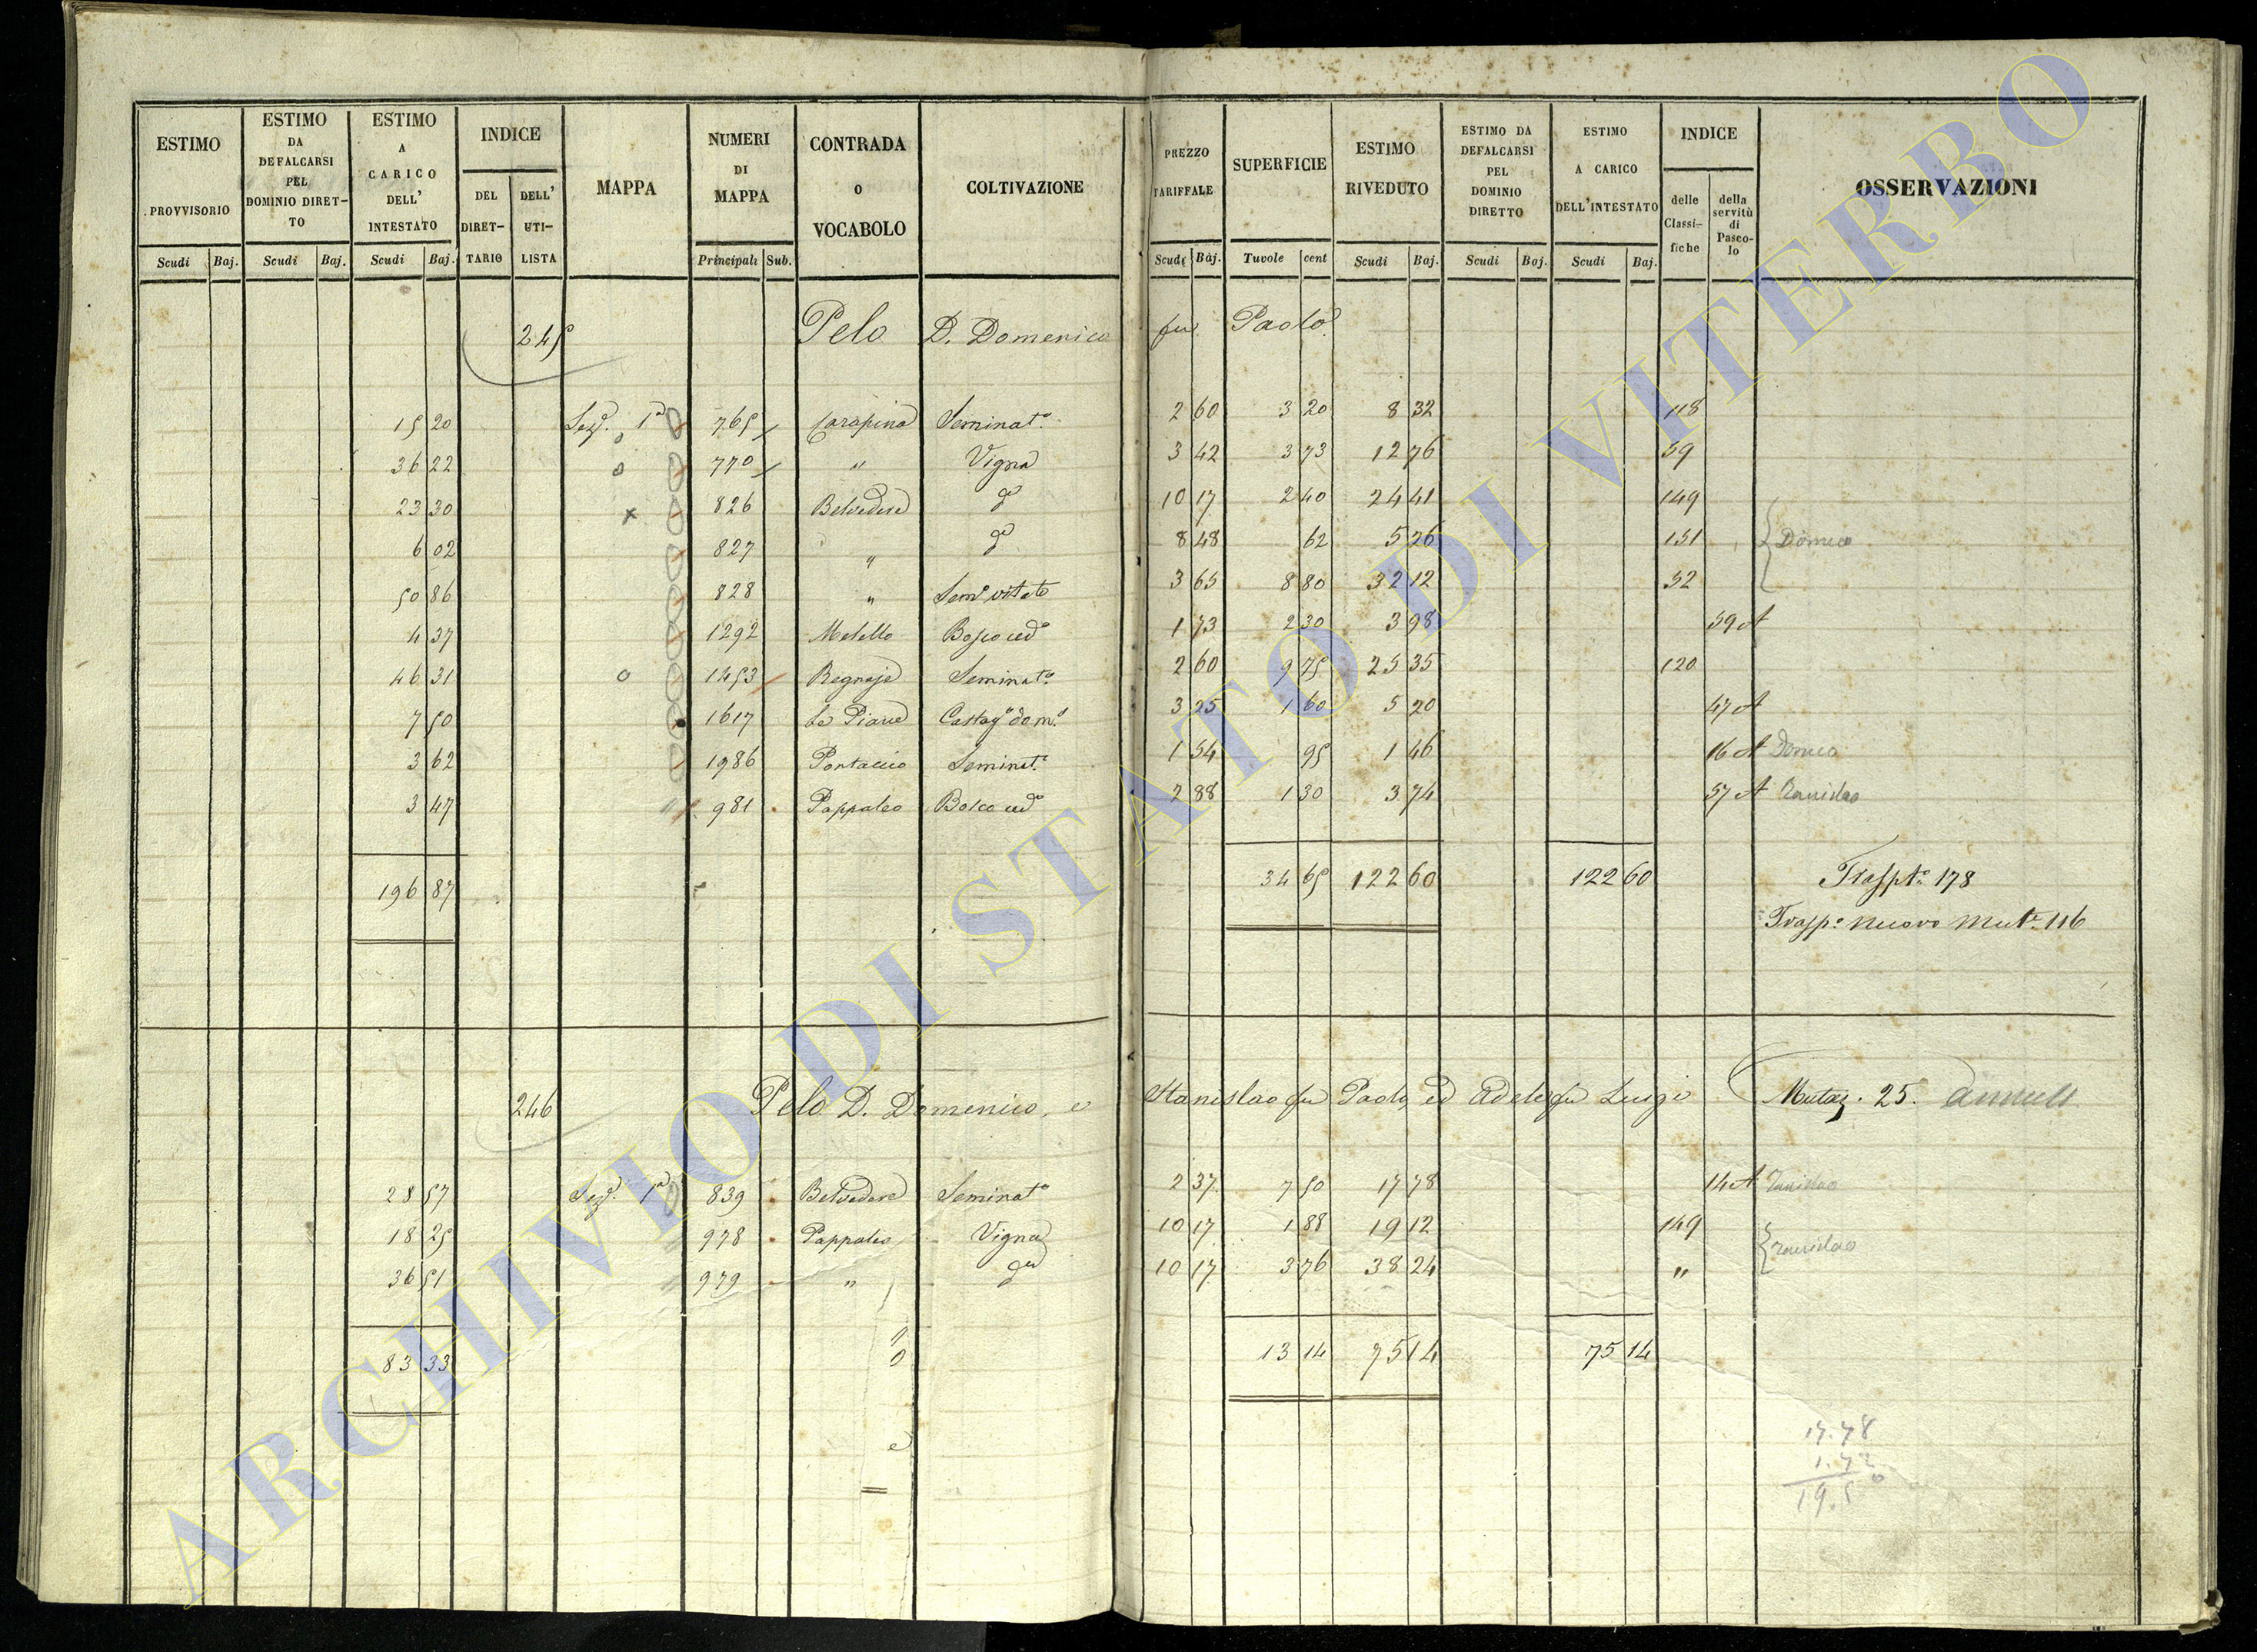 ESTIMO PROVVISORIO | ESTIMO DA DEFALCARSI PEL DOMINIO DIRETTO | ESTIMO A CARICO DELL' INTESTATO | INDICE | MAPPA | NUMERI DI MAPPA | CONTRADA O VOCABOLO | COLTIVAZIONE | PREZZO TARIFFALE | SUPERFICIE | ESTIMO RIVEDUTO | ESTIMO DA DEFALCARSI PEL DOMINIO DIRETTO | ESTIMO A CARICO DELL'INTESTATO | INDICE | OSSERVAZIONI
DEL DIRETTARIO | DELL' UTILISTA | delle Classifiche | della servitù di Pascolo
Scudi | Baj. | Scudi | Baj. | Scudi | Baj. | Principali | Sub. | Scudi | Baj. | Tavole | cent | Scudi | Baj. | Scudi | Baj. | Scudi | Baj.
245 Pelo D. Domenico fu Paolo
15 20 Sez.e 1a 765 Carapina Seminat.o 2 60 3 20 8 32 118
36 22 770 " Vigna 3 42 3 73 12 76 59
23 30 826 Belvedere do 10 17 2 40 24 41 149
6 02 827 " do 8 48 62 5 26 151 Domco
50 86 828 " Sem.o vitato 3 65 8 80 32 12 52
4 37 1292 Metello Bosco ced.o 1 73 2 30 3 98 59 A
46 31 1453 Regnaje Seminat.o 2 60 9 75 25 35 120
7 50 1617 Le Piane Castag.o dom.o 3 25 1 60 5 20 47 A
3 62 1986 Pontaccio Seminat.o 1 54 95 1 46 16 A Domco
3 47 981 Pappaleo Bosco ced.o 2 88 1 30 3 74 57 A
196 87 34 65 122 60 122 60 Traspto. 178
Trasp.o nuovo Mut.e 116
246 Pelo D. Domenico, e Stanislao fu Paolo, ed Adele fu Luigi Mutaz. 25.
28 57 Sez.e 1a 839 Belvedere Seminat.o 2 37 7 50 17 78 14 A
18 25 978 Pappaleo Vigna 10 17 1 88 19 12 149
36 51 979 " do 10 17 3 76 38 24 "
83 33 13 14 75 14 75 14
17.78
1.72
19.50
ARCHIVIO DI STATO DI VITERBO